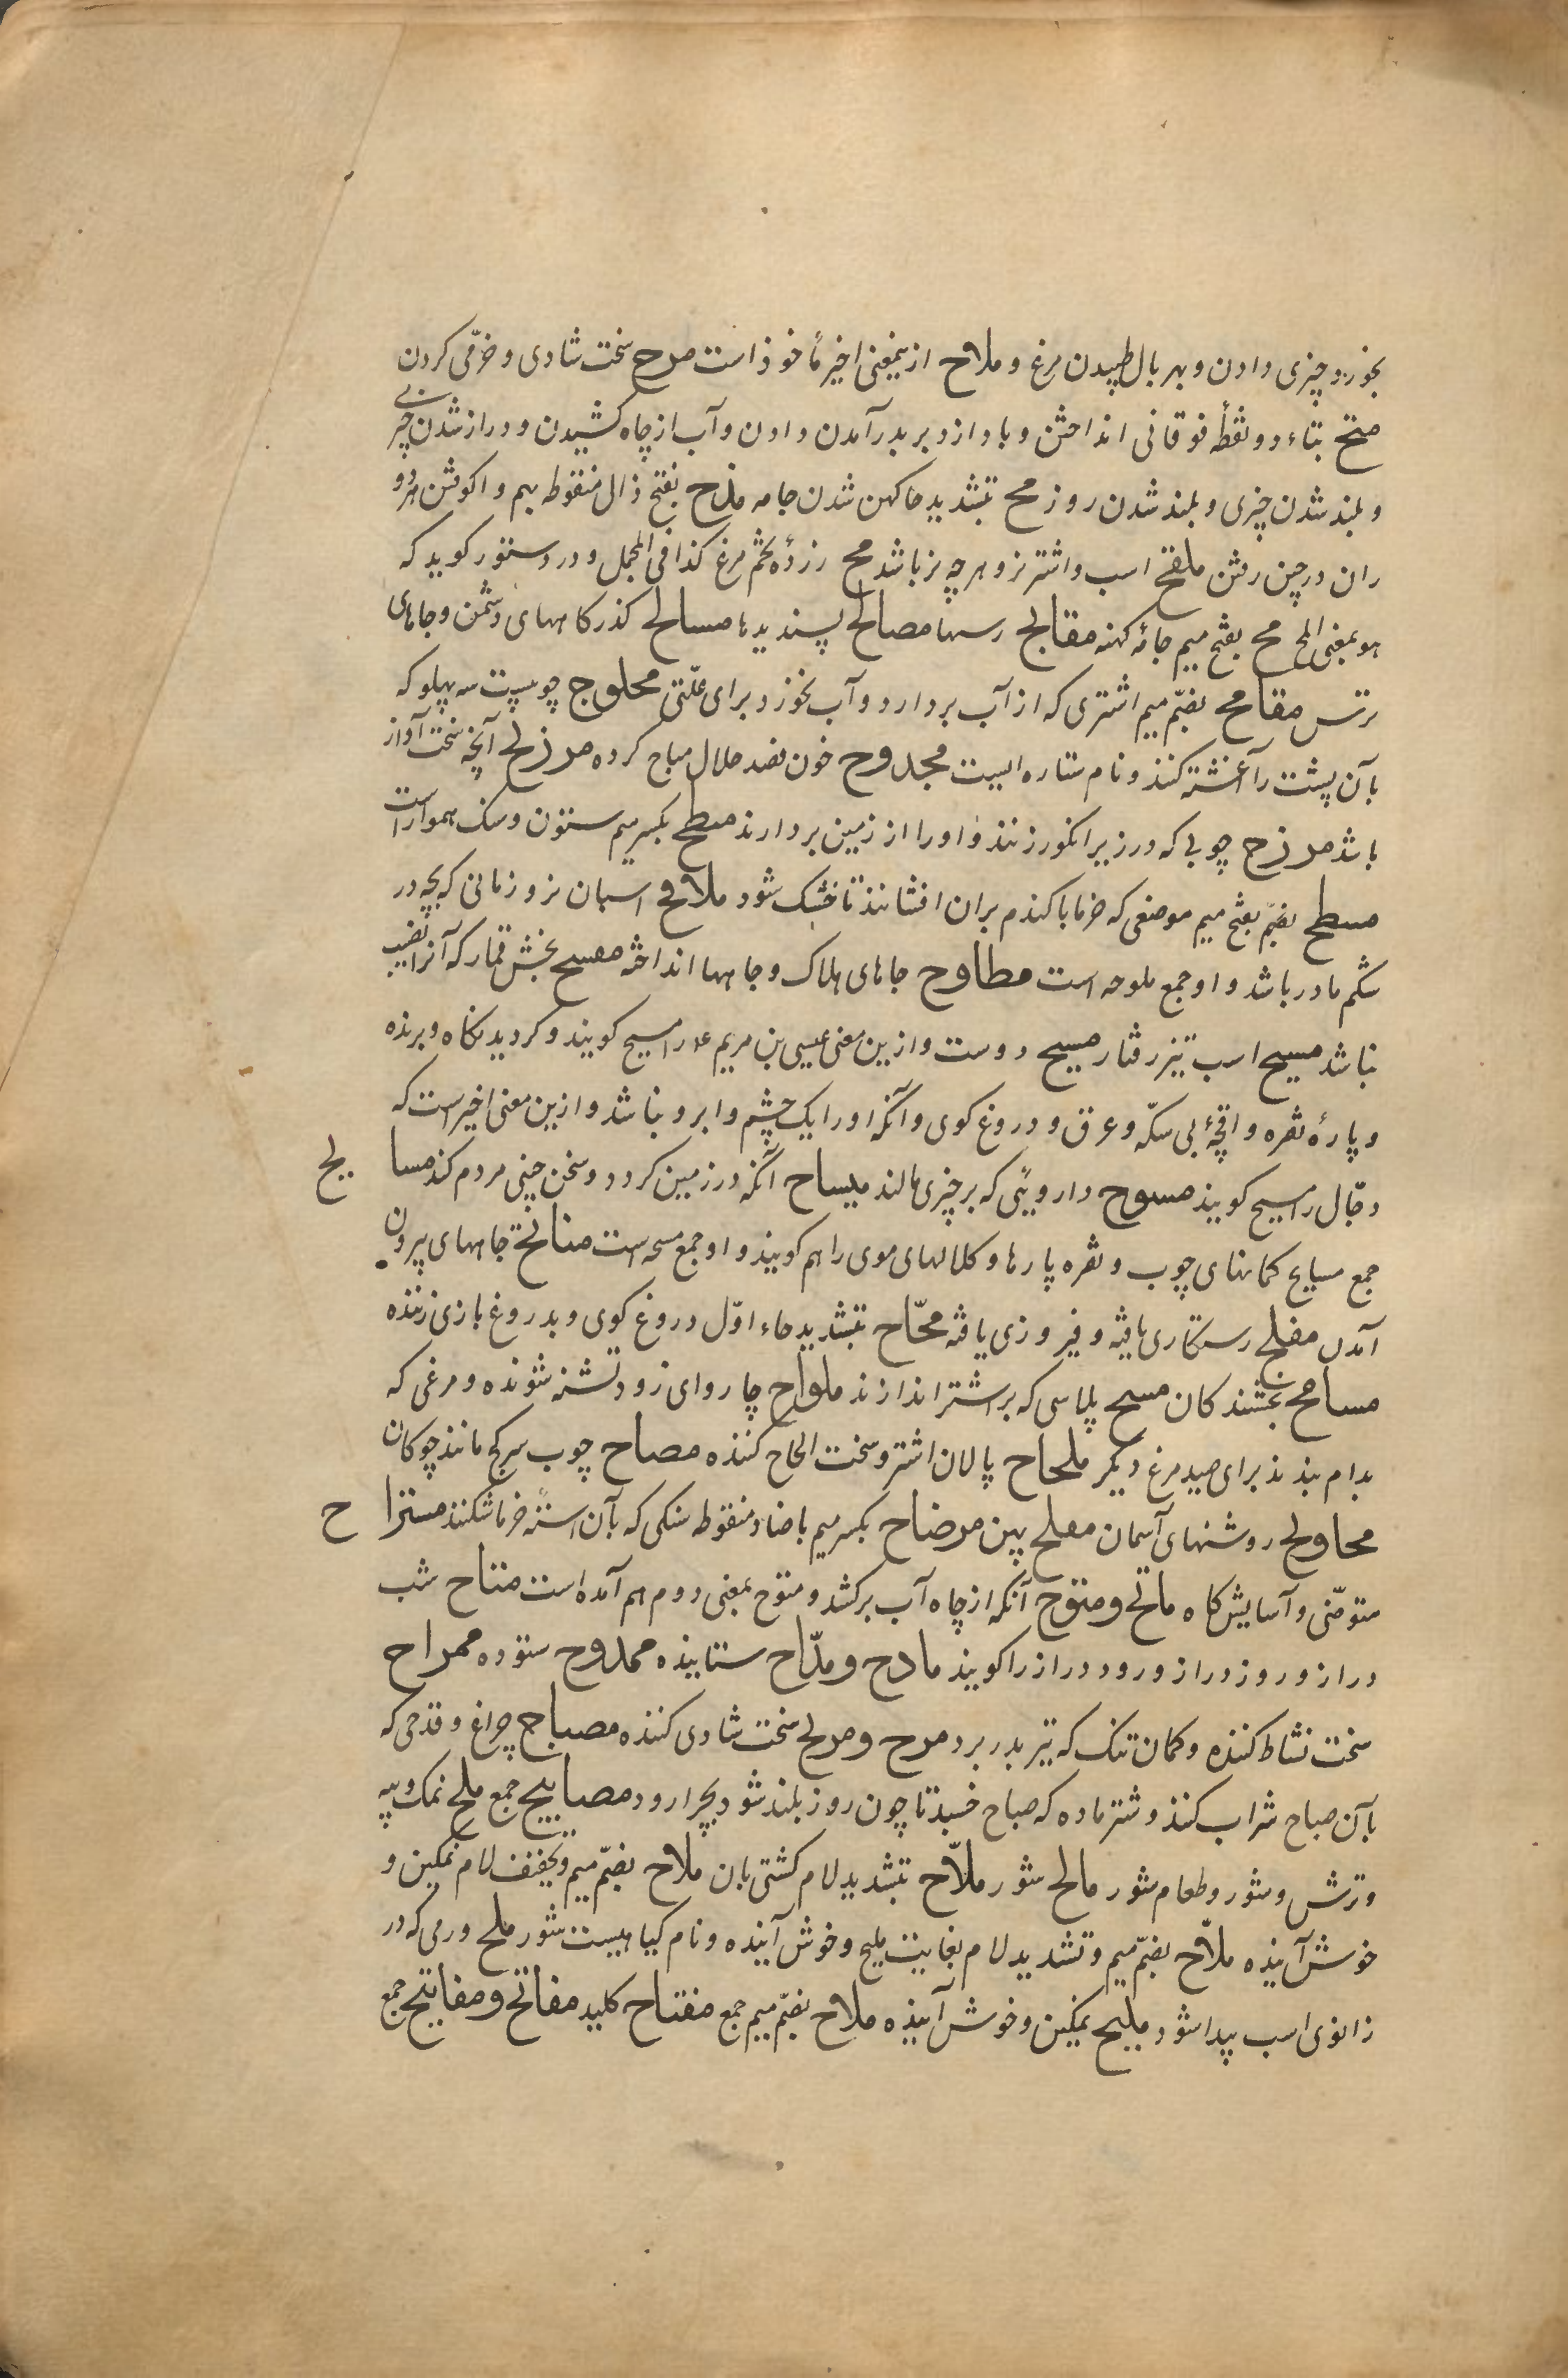 بخورد چیزی دادن و بهر بال طپیدن مرغ و ملاح ازینمعنی اخیر مأخوذ است مرح سخت شادی و خرّمی کردن
متح بتاء دو نقطهٔ فوقانی انداختن و باواز دبر بدر آمدن دادن و آب از چاه کشیدن و دراز شدن چیزی
و بلند شدن چیزی و بلند شدن روز مح بتشدید حا کهن شدن جامه مذح بفتح ذال منقوطه بهم واکوفتن هر دو
ران در حین رفتن ملقح اسب و اشتر نر و هر چه نر باشد مح زردهٔ تخم مرغ کذا فی المجمل و در دستور کوید که
هو بمعنی المح مح بفتح میم جامهٔ کهنه مقابح رسمها مصالح پسندیدها مسالح کذرکاههای دشمن و جاهای
ترس مقامح بضمّ میم اشتری که از آب بردارد و آب نخورد برای علّتی محلوج چوبیست سه پهلو که
بآن پشت را آغشته کنند و نام ستاره ایست مجدوح خون فصد حلال مباح کرده مرزیح آنچه سخت آواز
باشد مرزح چوبی که در زیر انکور زنند و او را از زمین بردارند مسطح بکسر میم ستون و سنک هموار است
مسطح بضمّ بفتح میم موضعی که خرما یا کندم بران افشانند تا خشک شود ملاقح اسبان نر و زمانی که بچه در
شکم مادر باشد و او جمع ملوحه است مطاوح جاهای هلاک و جامها انداخته مسیح بخش قمار که آنرا نصیب
نباشد مسیح اسب تیز رفتار مسیح دوست و ازین معنی عیسی بن مریم ع را مسیح کویند و کردیدنکاه و برنده
و پارهٔ نقره و اقچهٔ بی سکّه و عرق و دروغ کوی و آنکه او را یک چشم و ابرو نباشد و ازین معنی اخیر است که
دجّال را مسیح کویند مسوح دارویئی که بر چیزی مالند میساح آنکه در زمین کردد و سخن چینی مردم کند مسایح
جمع مسایح کمانهای چوب و نقره پارها و کلالهای موی را هم کویند و او جمع مسحه است منایح جامهای بیرون
آمدن مفلح رستکاری یافته و فیروزی یافته محّاح بتشدید حاء اوّل دروغ کوی و بدروغ بازی زننده
مسامح بخشندکان مسح پلاسی که بر اشتر اندازند ملواح چاروای زود تشنه شونده و مرغی که
بدام بندند برای صید مرغ دیکر ملحاح پالان اشتر و سخت الحاح کننده مصاح چوب سر کج مانند چوکان
محاویح روشنهای آسمان مفلح بین مرضاح بکسر میم با ضاد منقوطه سنکی که بآن استهٔ خرما شکنند مستراح
متوضّی و آسایش کاه ماتح و متوح آنکه از چاه آب برکشد و متوح بمعنی دوم هم آمده است متاح شب
دراز و روز دراز و رود دراز را کویند مادح و مدّاح ستاینده ممدوح ستوده ممراح
سخت نشاط کننده و کمان تنک که تیر بدر برد مرح و مریح سخت شادی کننده مصباح چراغ و قدحی که
بآن صباح شراب کنند و شتر ماده که صباح خسبد تا چون روز بلند شود بچرا رود مصابیح جمع ملح نمک و پیه
و ترش و شور و طعام شور مالح شور ملاّح بتشدید لام کشتی بان ملاح بضمّ میم و تخفیف لام نمکین و
خوش آینده ملاّح بضمّ میم و تشدید لام بغایت ملیح و خوش آینده و نام کیاهیست شور ملح ورمی که در
زانوی اسب پیدا شود ملیح نمکین و خوش آینده ملاح بضمّ میم جمع مفتاح کلید مفاتح و مفاتیح جمع